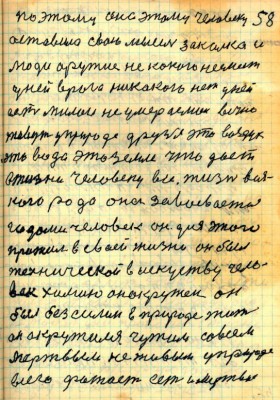 поэтому она этому человеку 58
оставила свою мысль закалка и
люди другие не какого не имет
у ней врага никакого нет у ней
есть милои не умераемои вечно
живут у природе друзя это воздух
это вода это земля что дает
в жизни человеку все. жизн вся-
кого рода она завоевается
годоми человек он для этого
прожил в своей жизни он был
технической в искуству чело-
век химию он окружен он
был без силии в природе жит
он окружился чужим совсем
мертвым не живым у природе
всего фатает ест и мертвое